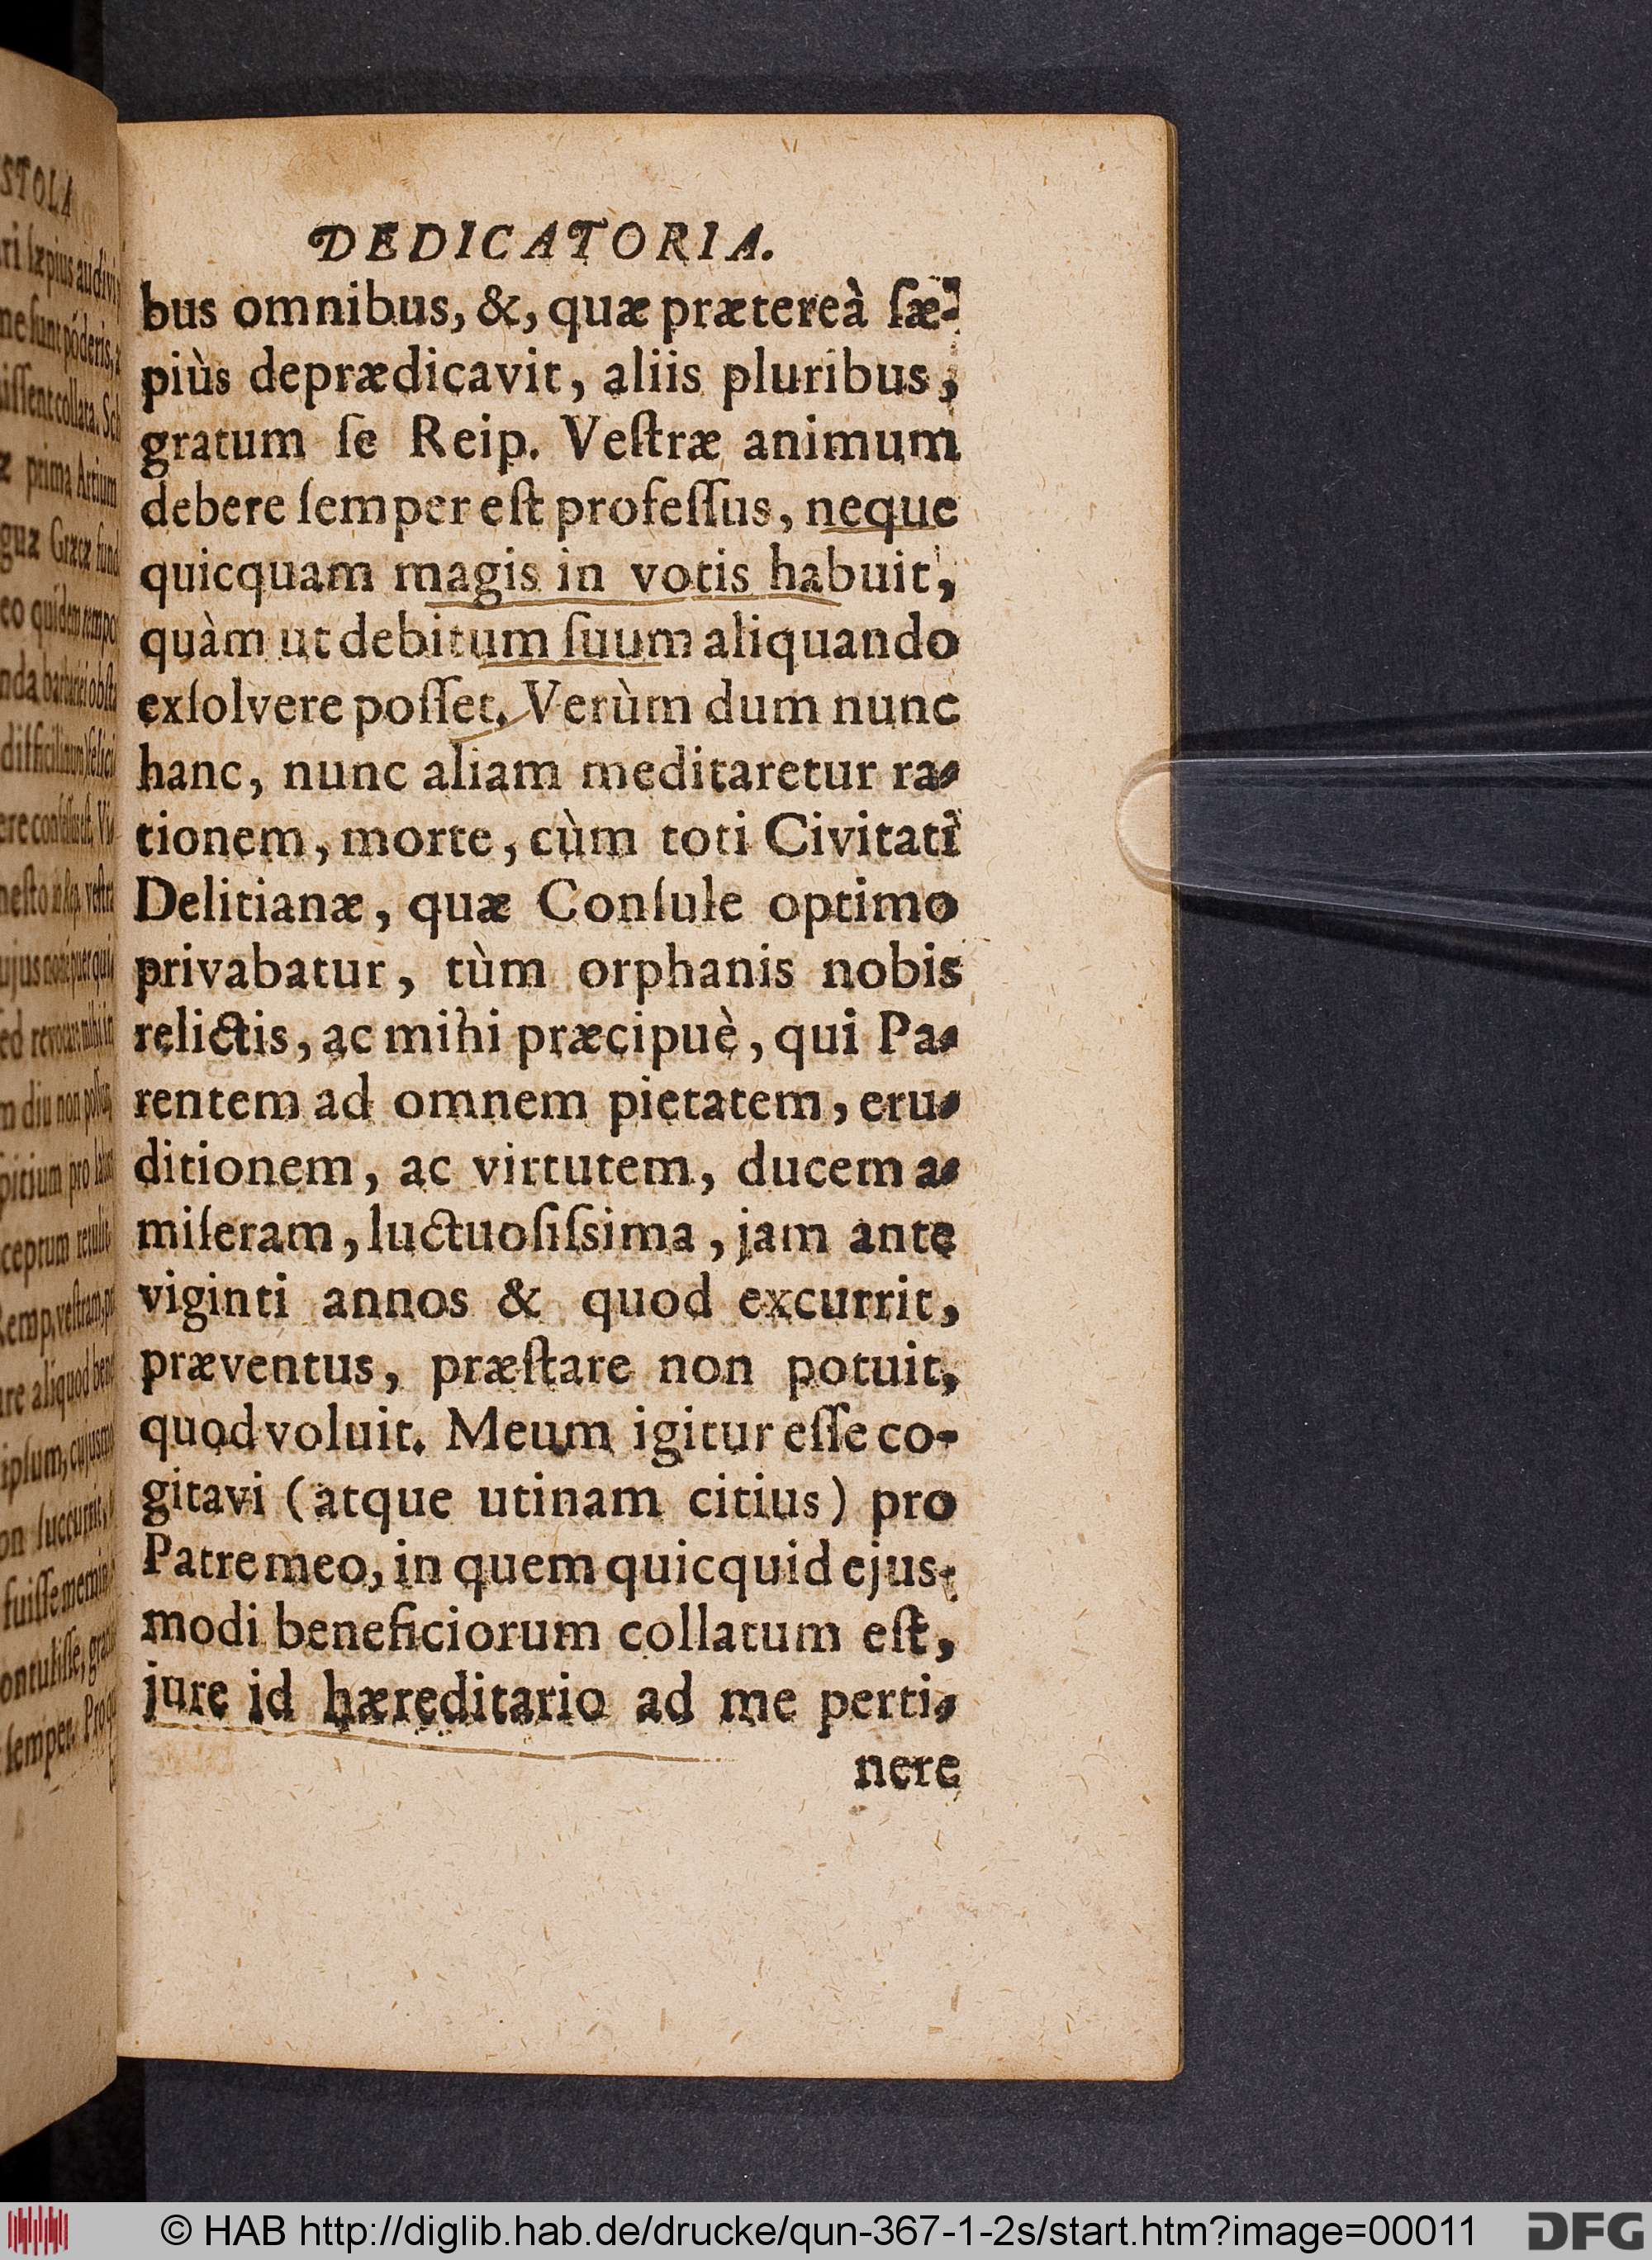 DEDICATORIA.
bus omnibus, &, quæ prætereà ſæ-
piùs deprædicavit, aliis pluribus,
gratum ſe Reip. Veſtræ animum
debere ſemper eſt profeſſus, neque
quicquam magis in votis habuit,
quàm ut debitum ſuum aliquando
exſolvere poſſet. Verùm dum nunc
hanc, nunc aliam meditaretur ra-
tionem, morte, cùm toti Civitati
Delitianæ, quæ Conſule optimo
privabatur, tùm orphanis nobis
relictis, ac mihi præcipuè, qui Pa-
rentem ad omnem pietatem, eru-
ditionem, ac virtutem, ducem a-
miſeram, luctuoſiſsima, jam ante
viginti annos & quod excurrit,
præventus, præſtare non potuit,
quod voluit. Meum igitur eſſe co-
gitavi (atque utinam citius) pro
Patre meo, in quem quicquid ejus-
modi beneficiorum collatum eſt,
jure id hæreditario ad me perti-
nere
© HAB http://diglib.hab.de/drucke/qun-367-1-2s/start.htm?image=00011
DFG